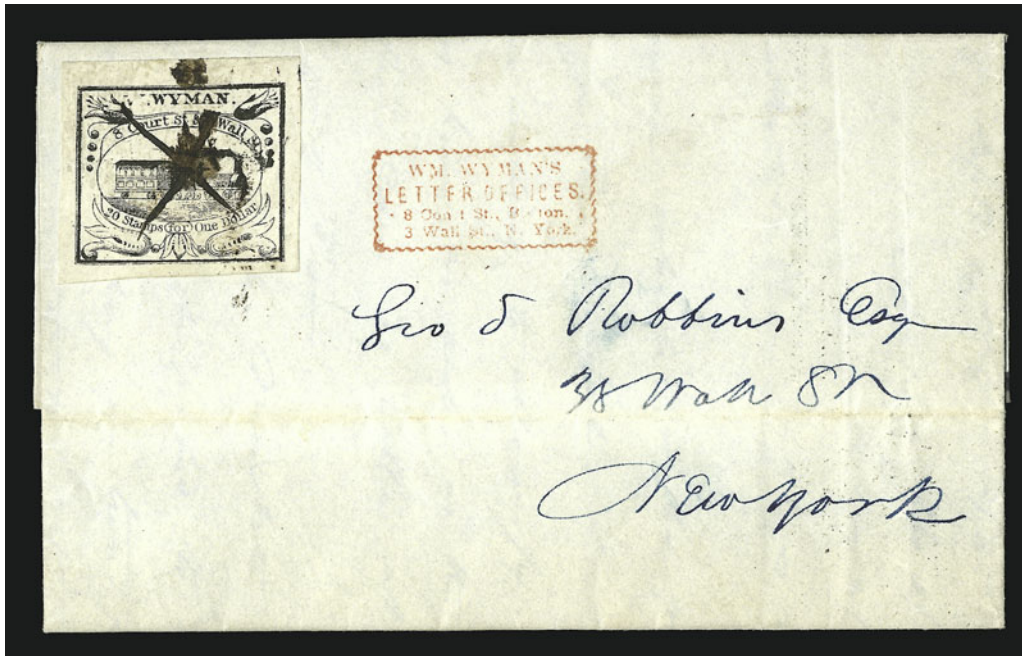 WYMAN.
8 Court St & Wall St
20 Stamps for One Dollar
WM. WYMAN'S
LETTER OFFICES.
8 Court St., Boston.
3 Wall St., N. York.
Geo S Robbins Esq
38 Wall St
New York